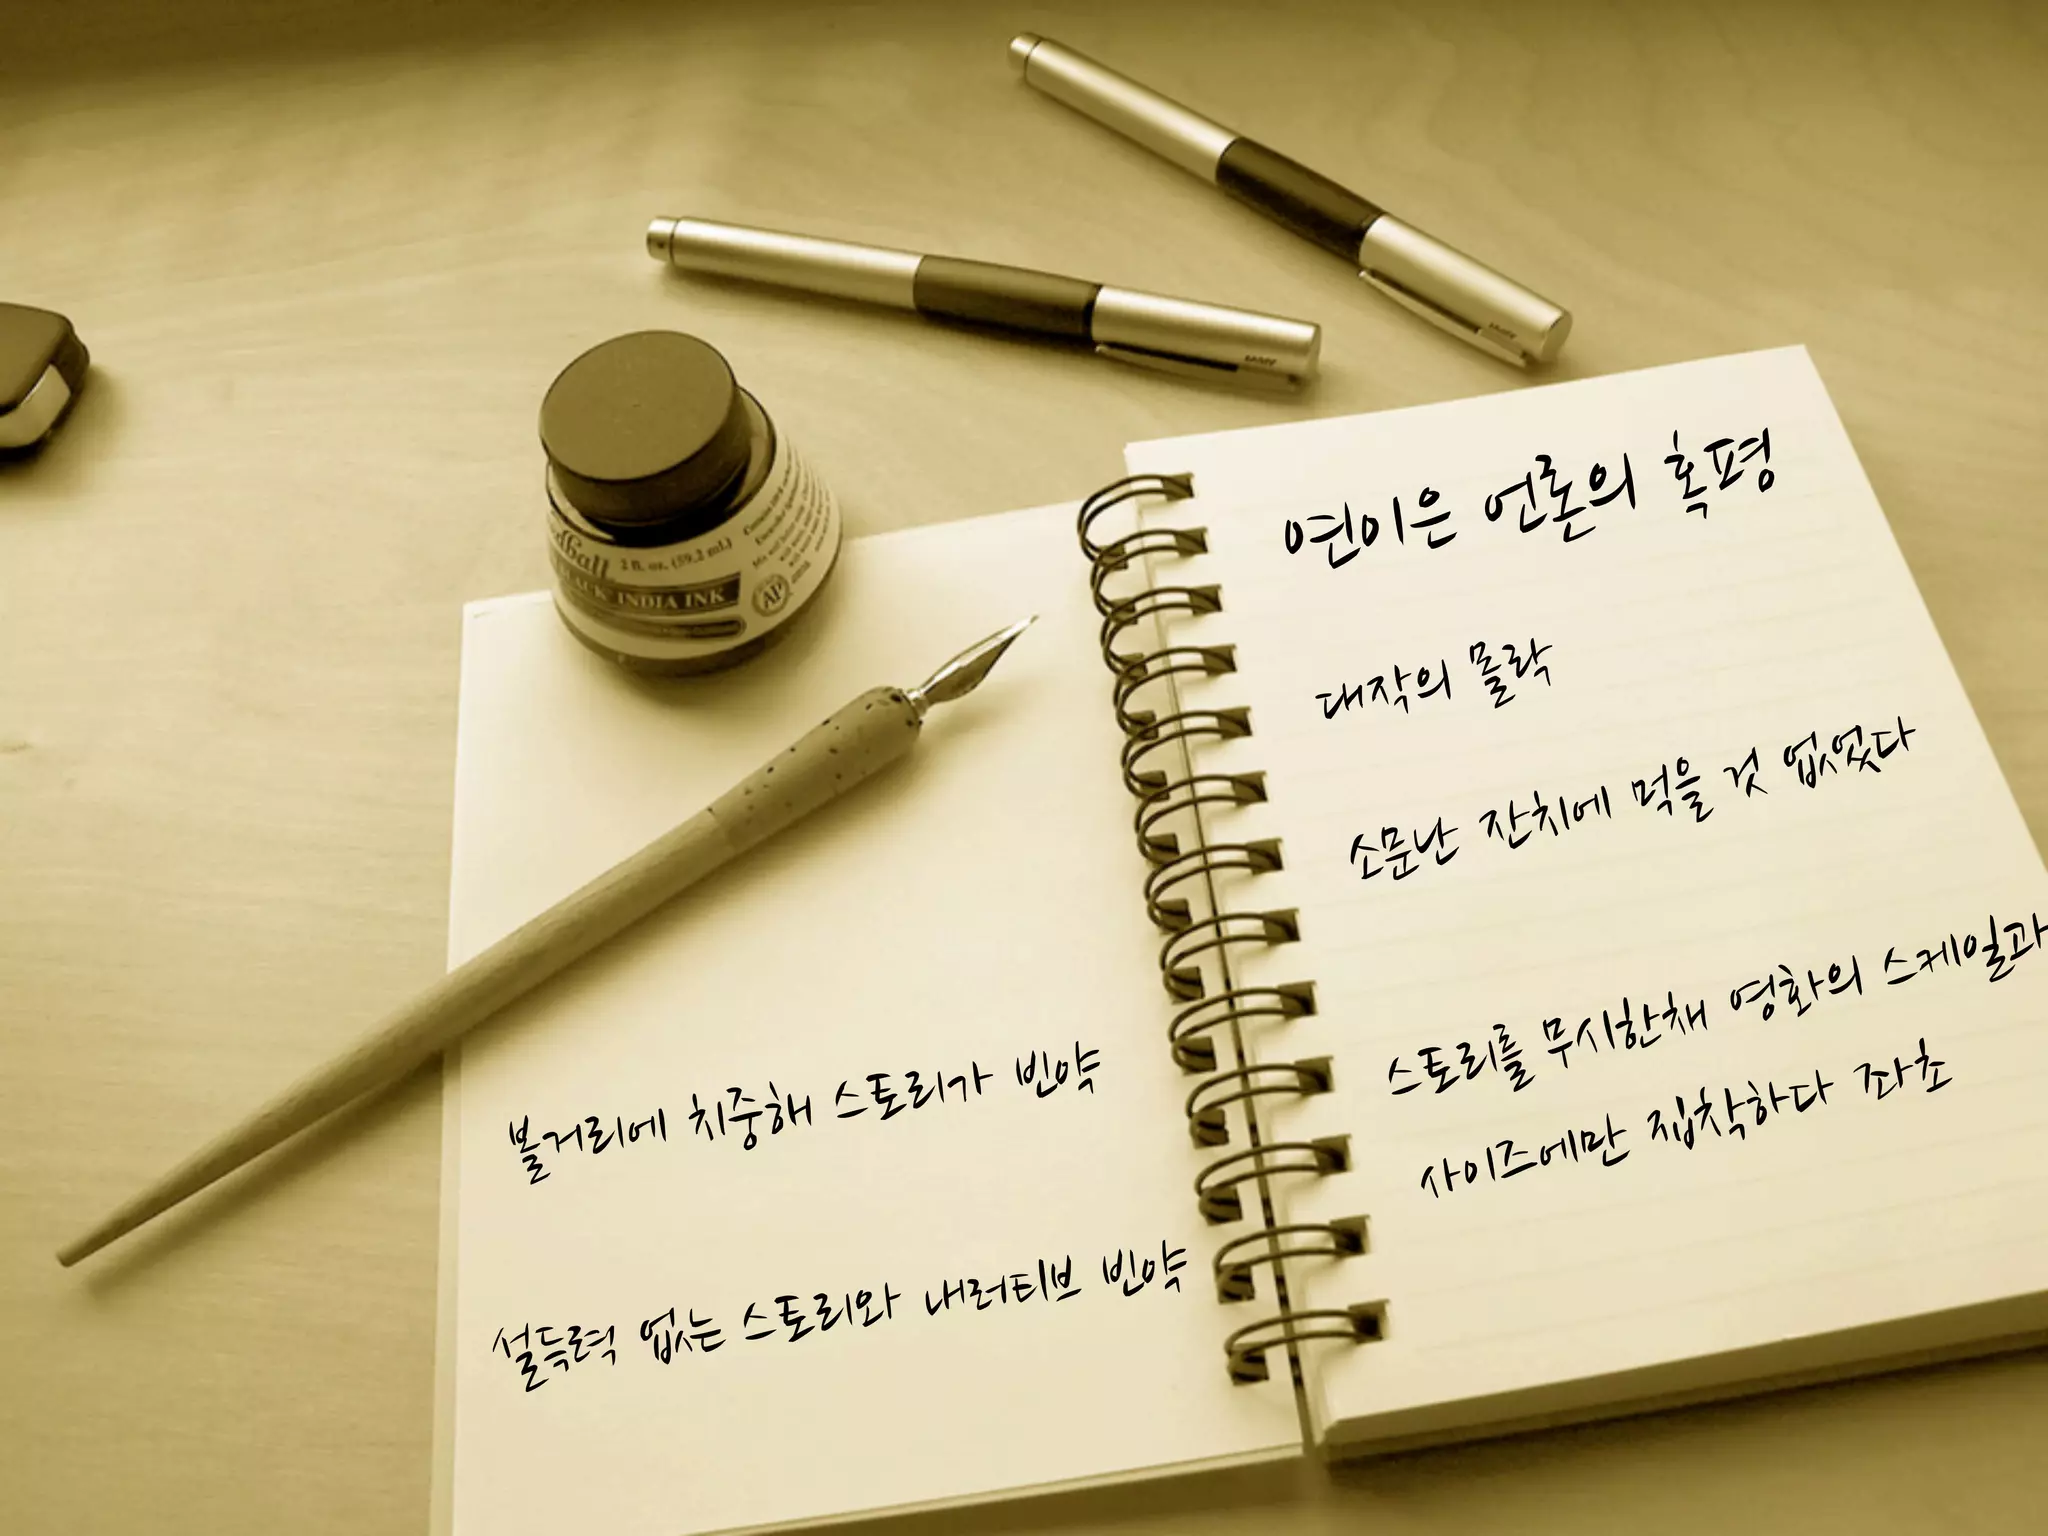 연이은 언론의 혹평
대작의 몰락
소문난 잔치에 먹을 것 없었다
스토리를 무시한채 영화의 스케일과
사이즈에만 집착하다 좌초
볼거리에 치중해 스토리가 빈약
설득력 없는 스토리와 내러티브 빈약
2 fl. oz. (59.2 mL)
BLACK INDIA INK
AP
LAMY
LAMY